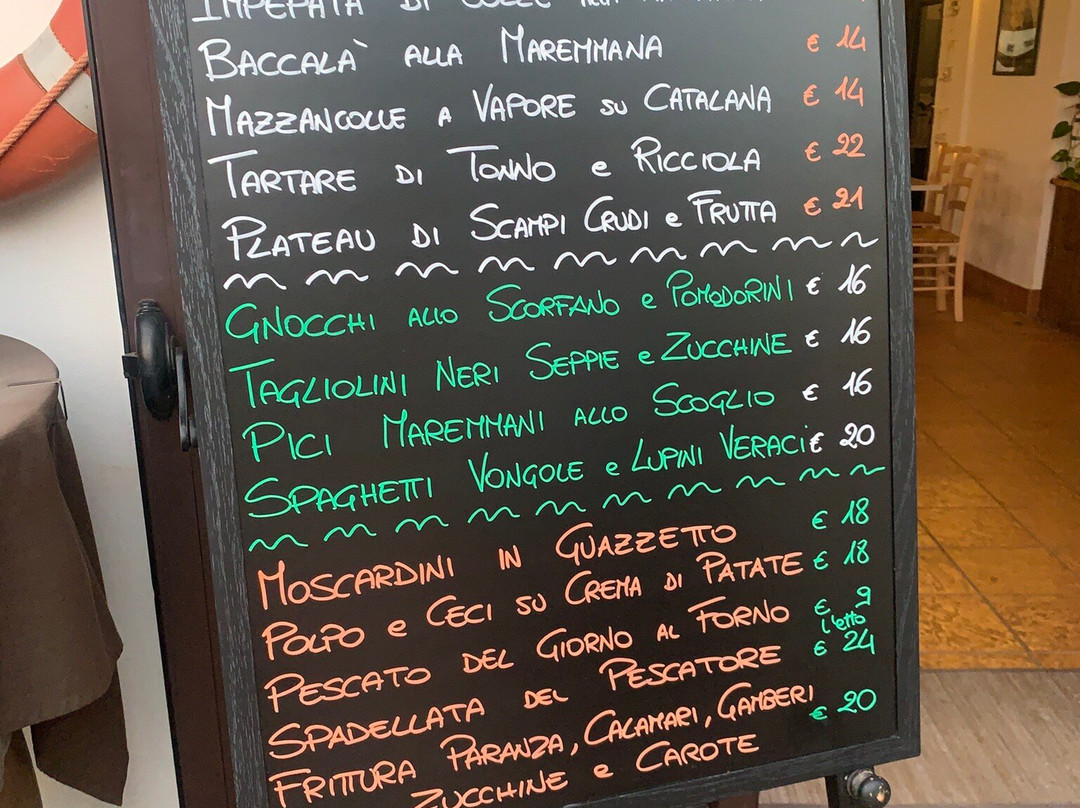 IMPEPATA DI
BACCALÀ ALLA MAREMMANA € 14
MAZZANCOLLE A VAPORE SU CATALANA € 14
TARTARE DI TONNO e RICCIOLA € 22
PLATEAU DI SCAMPI CRUDI e FRUTTA € 21
GNOCCHI ALLO SCORFANO e POMODORINI € 16
TAGLIOLINI NERI SEPPIE e ZUCCHINE € 16
PICI MAREMMANI ALLO SCOGLIO € 16
SPAGHETTI VONGOLE e LUPINI VERACI € 20
MOSCARDINI IN GUAZZETTO € 18
POLPO e CECI SU CREMA DI PATATE € 18
PESCATO DEL GIORNO AL FORNO € 9 l'etto
SPADELLATA DEL PESCATORE € 24
FRITTURA PARANZA, CALAMARI, GAMBERI, € 20
ZUCCHINE e CAROTE